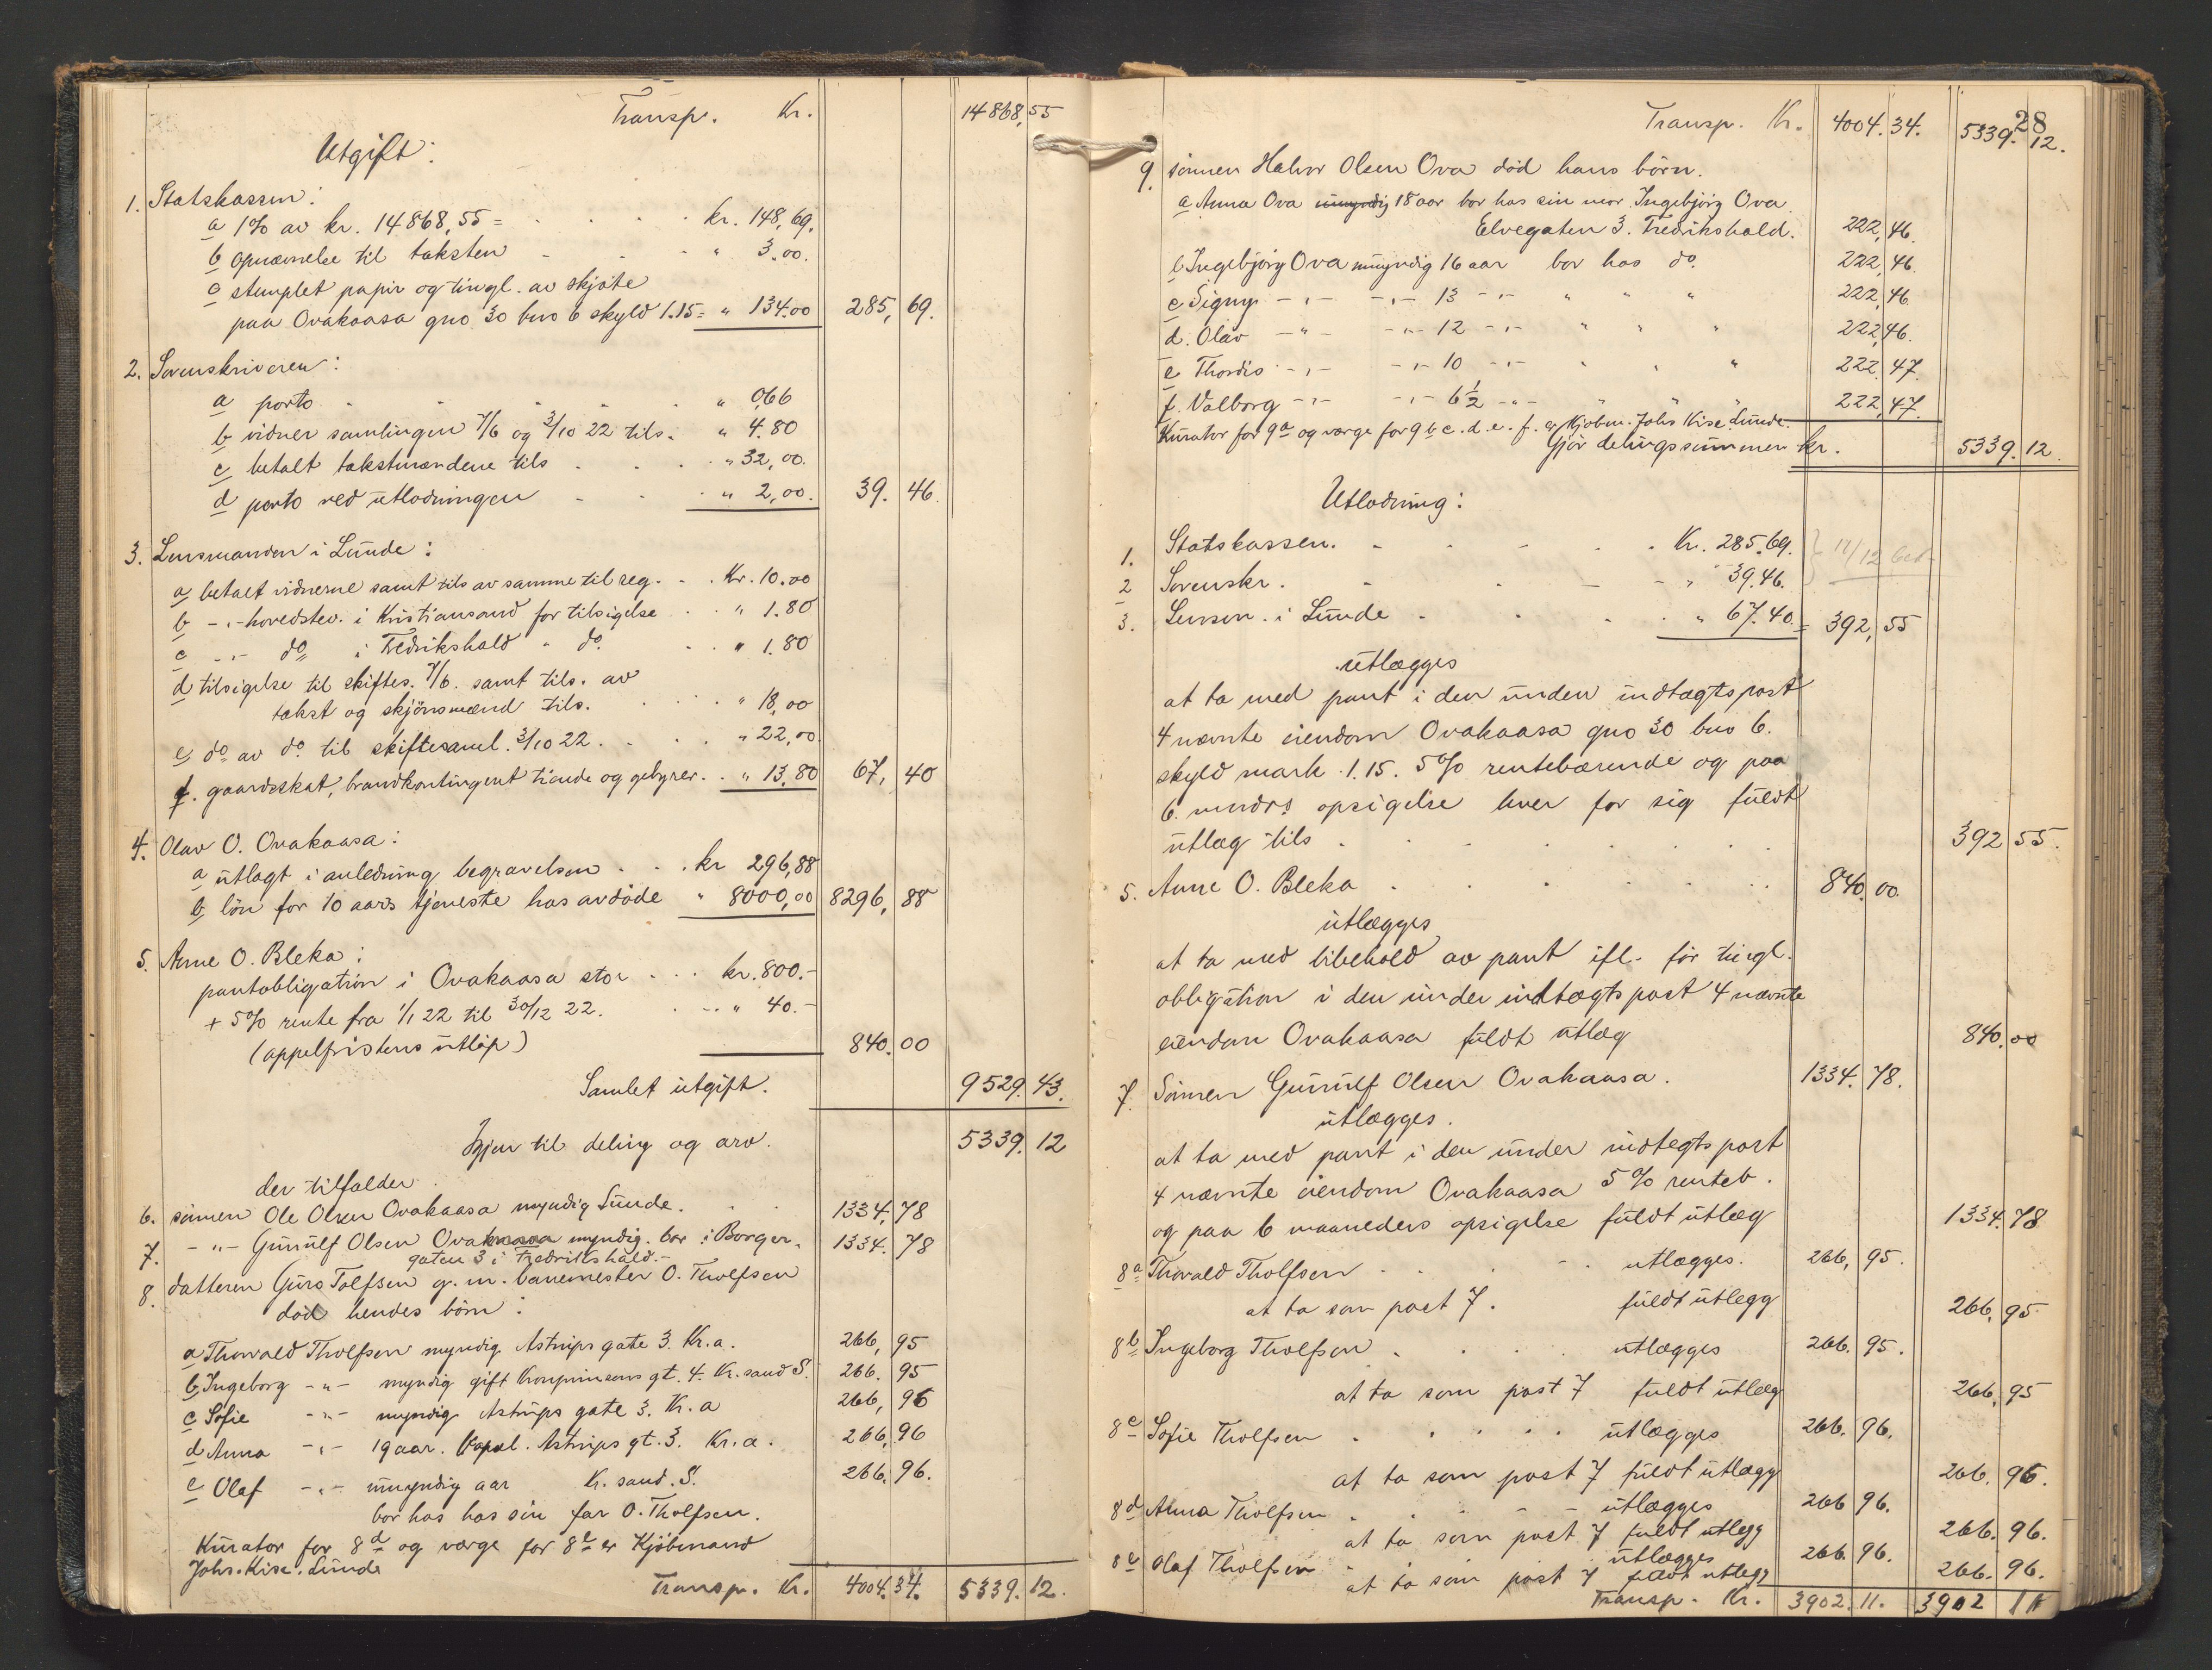 Transp. Kr. 14868,55
Utgift:
1. Statskassen:
a 1% av kr. 14868,55 = kr. 148,69.
b opnævnelse til taksten " 3.00.
c stemplet papir og tingl. av skjøte
paa Ovakaasa gno 30 bno 6 skyld 1.15 = " 134.00 285,69.
2. Sorenskriveren:
a porto " 0,66
b vidner samlingen 7/6 og 3/10 22 tils. " 4.80
c betalt takstmændene tils " 32,00.
d porto ved utlodningen " 2,00. 39.46.
3. Lensmanden i Lunde:
a betalt vidnerne samt tils av samme til reg. Kr. 10.00
b -"- hovedstev. i Kristiansand for tilsigelse " 1.80
c -"- do i Fredrikshald " do. " 1.80
d tilsigelse til skiftes. 7/6. samt tils. av
takst og skjönsmænd tils. " 18,00
e do av do til skiftesaml. 3/10 22. " 22,00.
f. gaardsskat, brandkontingent tiende og gebyrer. " 13.80 67,40
4. Olav O. Ovakaasa:
a utlagt i anledning begravelsen kr 296,88
b lön for 10 aars tjeneste hos avdöde " 8000,00 8296,88
5. Anne O. Bleka:
pantobligation i Ovakaasa stor kr. 800.-
+ 5% rente fra 1/1 22 til 30/12 22. " 40.-
(appelfristens utlöp) 840.00
Samlet utgift. 9529.43.
Igjen til deling og arv. 5339.12
der tilfalder
6. sönnen Ole Olsen Ovakaasa myndig Lunde. 1334.78
7. -"- Gunulf Olsen Ovakaasa myndig. bor i Borger- 1334.78
gaten 3 i Fredrikshald.-
8. datteren Guro Tolfsen g. m. banemester O. Tholfsen
död hendes börn:
a Thorvald Tholfsen myndig Astrups gate 3. Kr.a. 266,95
b Ingeborg -"- myndig gift Kronprinsens gt. 4. Kr.sand S. 266.95
c Sofie -"- myndig Astrups gate 3. Kr.a 266,96
d Anna -"- 19 aar. Astrups gt. 3. Kr.a. 266,96
e Olaf -"- umyndig aar Kr.sand. S. 266.96.
bor hos hos sin far O. Tholfsen.
Kurator for 8d og værge for 8e er Kjöbmand
Johs. Kise. Lunde
Transp. Kr. 4004.34. 5339.12.
28
Transp. Kr. 4004.34. 5339.12.
9. sönnen Halvor Olsen Ova död hans börn.
a Anna Ova umyndig 18 aar bor hos sin mor Ingebjörg Ova
Elvegaten 3. Fredrikshald. 222,46.
b Ingebjörg Ova umyndig 16 aar bor hos do. 222,46.
c Signy -"- -"- 13 -"- " " " 222,46.
d. Olav -"- -"- 12 -"- " " " 222,46.
e Thordis -"- -"- 10 -"- " " " 222.47.
f. Valborg -"- -"- 6 1/2 -"- " " " 222,47.
Kurator for 9a og værge for 9 b c. d. e. f. er Kjøbm. Johs Kise. Lunde.
Gjör delingssummen kr. 5339.12.
Utlodning:
1. Statskassen. Kr. 285.69. } 12/12 bet
2 Sorenskr. " 39.46.
3. Lensm. i Lunde " 67.40. = 392,55
utlægges
at ta med pant i den under indtægtspost
4 nævnte eiendom Ovakaasa gno 30 bno 6.
skyld mark 1.15. 5% rentebærende og paa
6. mndrs opsigelse hver for sig fuldt
utlæg tils 392 55.
5. Anne O. Bleka 840.00.
utlægges
at ta med bibehold av pant ifl. før tingl.
obligation i den under indtægtspost 4 nævnte
eiendom Ovakaasa fuldt utlæg 840.00
7. Sönnen Gunulf Olsen Ovakaasa. 1334.78.
utlægges.
at ta med pant i den under indtegtspost
4 nævnte eiendom Ovakaasa 5% renteb.
og paa 6 maaneders opsigelse fuldt utlæg 1334.78
8a Thorvald Tholfsen utlægges. 266,95.
at ta som post 7. fuldt utlegg 266,95
8b Ingeborg Tholfsen utlægges 266.95.
at ta som post 7 fuldt utlæg 266,95
8c Sofie Tholfsen utlægges 266.96.
at ta som post 7 fuldt utlægg 266.96.
8d Anna Tholfsen utlægges 266 96.
at ta som post 7 fuldt utlegg 266.96.
8e Olaf Tholfsen utlægges 266.96.
at ta som post 7 fuldt utlegg 266.96.
Transp. Kr. 3902.11. 3902 11